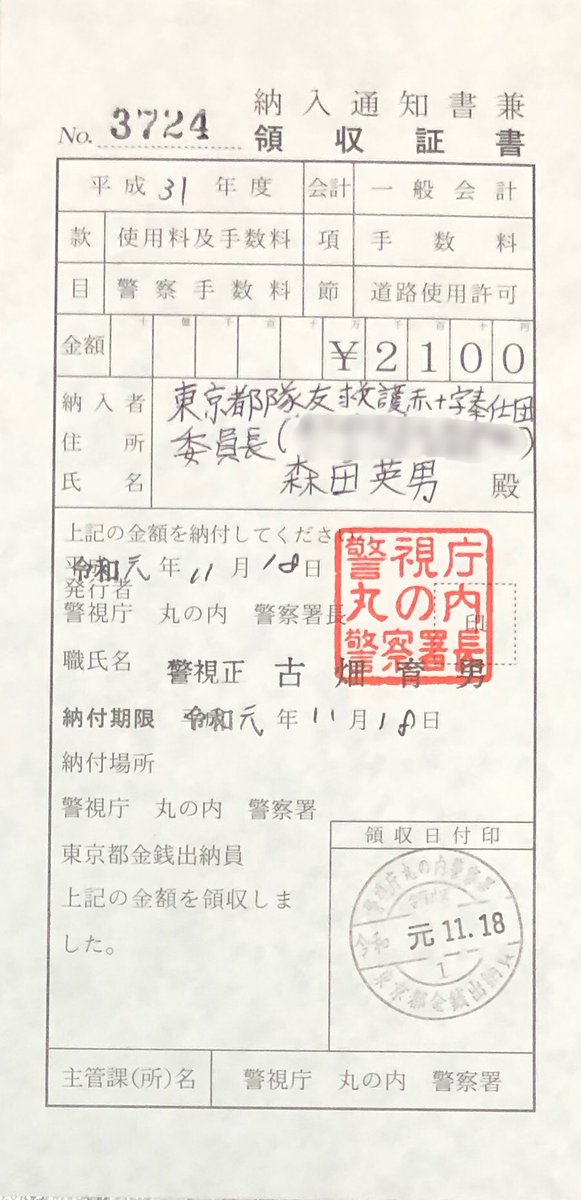 納入通知書兼
No. 3724 領収証書
平成31年度 会計 一般会計
款 使用料及手数料 項 手数料
目 警察手数料 節 道路使用許可
十億千百十万千百十円
金額 ¥2100
納入者 東京都隊友救護赤十字奉仕団
住所 委員長( )
氏名 森田英男 殿
上記の金額を納付してください。
令和元年11月18日
発行者
警視庁 丸の内 警察署長
職氏名 警視正 古畑育男
印
警視庁
丸の内
警察署長
納付期限 令和元年11月18日
納付場所
警視庁 丸の内 警察署
東京都金銭出納員
上記の金額を領収しま
した。
領収日付印
警視庁丸の内警察署
令和 元 11.18
1
東京都金銭出納員
主管課(所)名 警視庁 丸の内 警察署